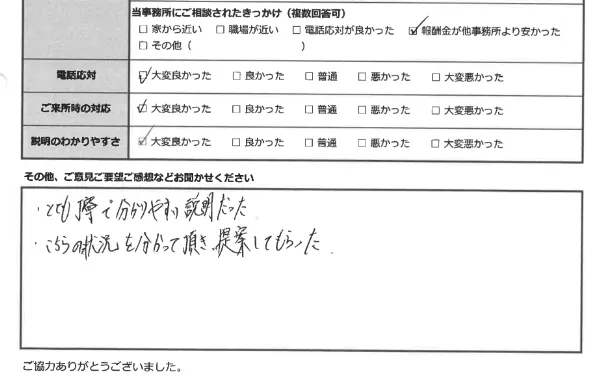 当事務所にご相談されたきっかけ（複数回答可）
□ 家から近い □ 職場が近い □ 電話応対が良かった ☑ 報酬金が他事務所より安かった
□ その他（ ）
電話応対 ☑ 大変良かった □ 良かった □ 普通 □ 悪かった □ 大変悪かった
ご来所時の対応 ☑ 大変良かった □ 良かった □ 普通 □ 悪かった □ 大変悪かった
説明のわかりやすさ ☑ 大変良かった □ 良かった □ 普通 □ 悪かった □ 大変悪かった
その他、ご意見ご要望ご感想などお聞かせください
・とても 寧で分かりやすい説明だった
・こちらの状況を分かって頂き、提案してもらった
ご協力ありがとうございました。